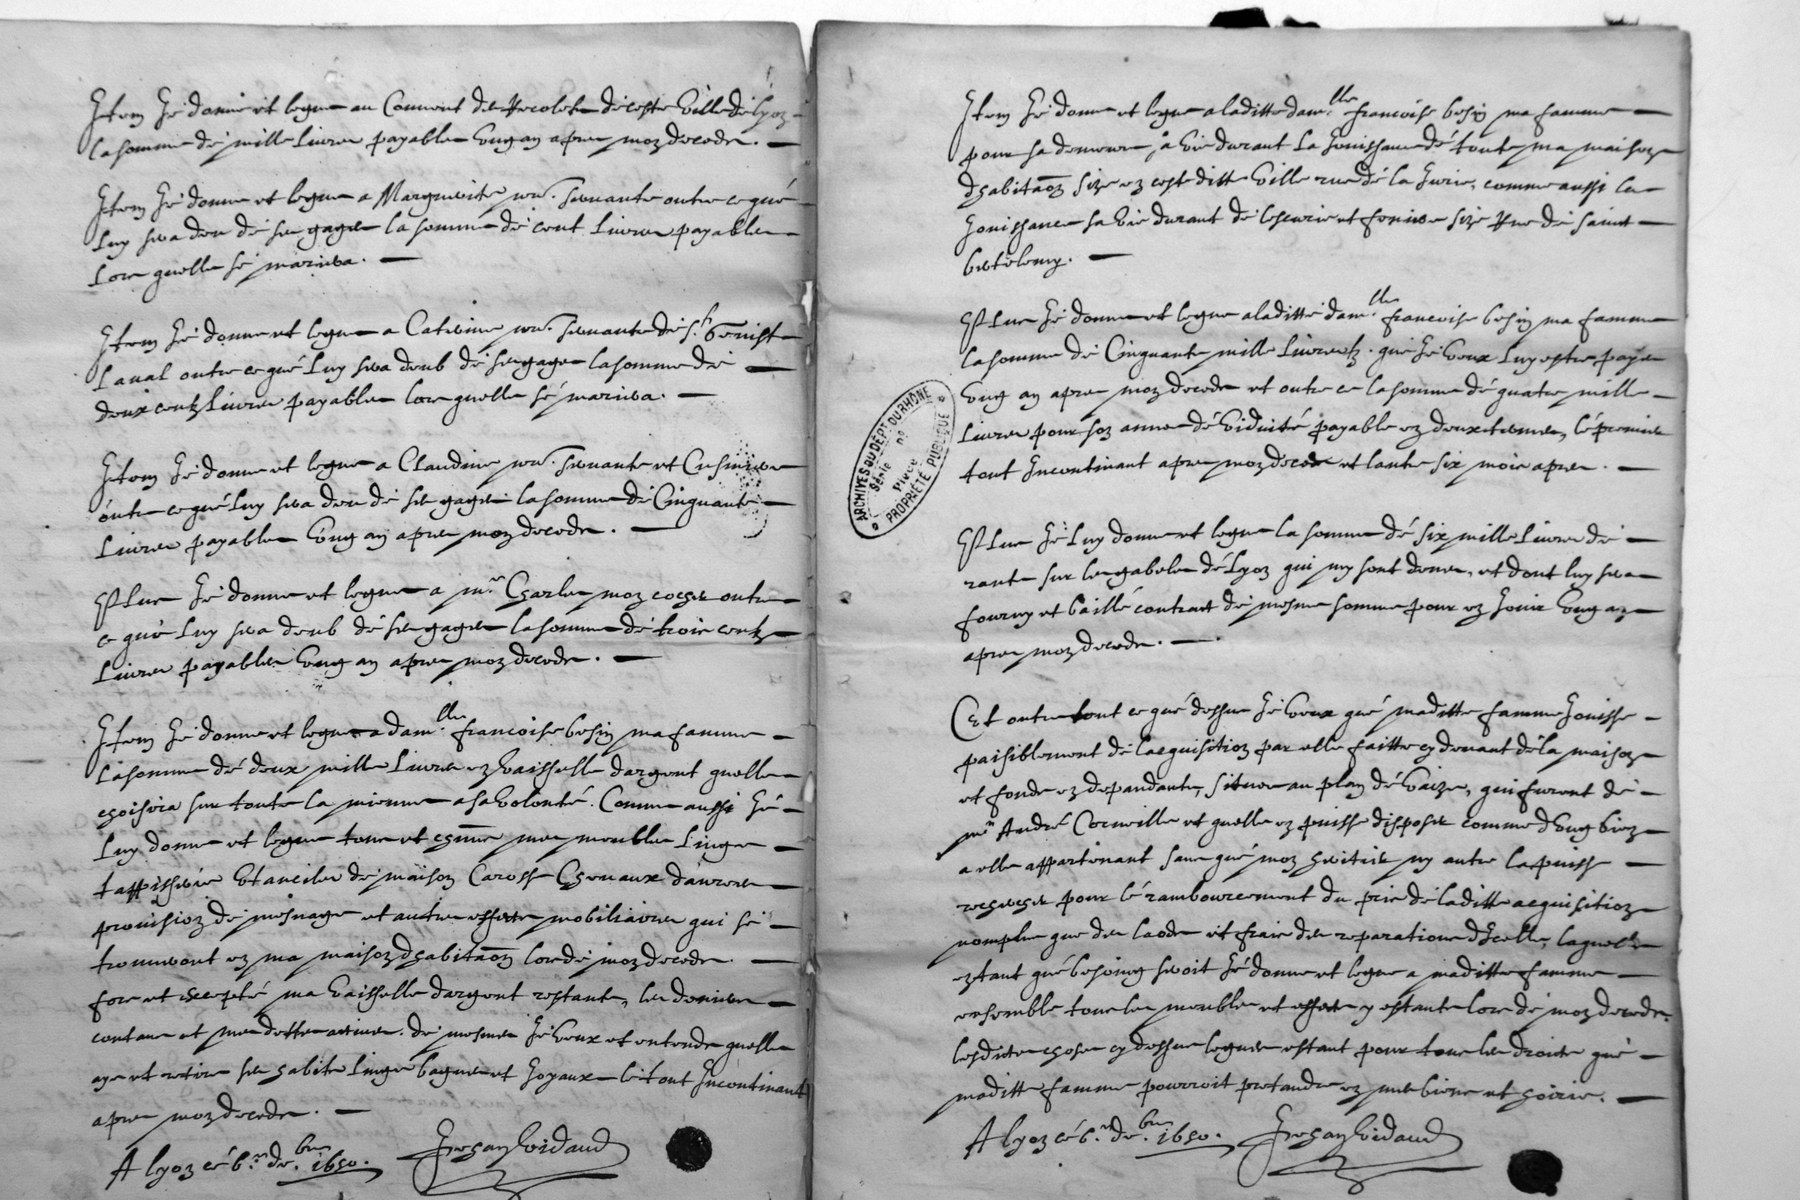 Item Je donne et legue au Couvent des Recoletz de ceste Ville de Lyoz
la somme de mille livres payables Ung an apres moz deceds.
Item Je donne et legue a Marguerite servante outre ce que
luy sera deu de ses gages la somme de cent livres payables
lors quelle se mariera.
Item Je donne et legue a Caterine servante de St Genist
Laval outre ce que luy sera deub de ses gages la somme de
deux centz livres payables lors quelle se mariera.
Item Je donne et legue a Claudine servante et Cusiniere
outre ce que luy sera deu de ses gages la somme de Cinquante
Livres payables Ung an apres moz deceds.
Plus Je donne et legue a mr Charles moz cocher outre
ce que luy sera deub de ses gages la somme de trois centz
Livres payables Ung an apres moz deceds.
Item Je donne et legue a damlle francoise besin ma famme
la somme de deux mille livres ez vaisselle dargent quelle
choisira sur toute la mienne a sa volonté. Comme aussi Jé
luy donne et legue tous et chune mes meubles linges
tappisserie Utanciles de maison Carosse Chevaux danrees
provisioz de mesnage et autres effects mobiliaires qui se
trouveront ez ma maisoz dhabitaoz lors de moz deceds.
fors et excepté ma vaisselle dargent restante, les deniers
contans et mes dettes actives. de mesmes Je veux et entends quelle
aye et retire ses habits linges bagues et Joyaux le tout Incontinant
apres moz deceds.
A Lyoz cé 6.e de.bre 1650. Jehan Vidaud
Item Je donne et legue a laditte damlle francoise besin ma famme
pour sa demeure, a vie durant la Jouissance dé toute ma maisoz
dhabitaoz size ez cest ditte Ville rue dé la Juive, comme aussi la
Jouissance sa vie durant de lescurie et feniere sizé Rue dé saint
bertelemy.
Plus Jé donne et legue a laditté damlle francoise besin ma famme
la somme de Cinquante mille livres tz. qué Je veux luy estre payés
Ung an apres moz deceds et outre ce la somme dé quatre mille
livres pour soz annee dé viduité payable ez deux termes, lé premier
tout Incontinant apres moz deceds et lautre six mois apres.
Plus Jé luy donne et legue la somme dé six mille livres dé
rante sur les gabeles dé Lyoz qui my sont deues, et dont luy sera
fourny et baillé contract de mesme somme pour ez Jouir Ung an
apres moz deceds.
Et outre tout ce qué dessus Jé veux qué maditte famme Jouisse
paisiblement de lacquisitioz par elle faitte cy devant dé la maisoz
et fonds ez depandants, situes au plan dé Vaize, qui furent de
mr André Corneille et quelle ez puisse disposer comme dUng biez
a elle appartenant sans qué moz heritier ny autre la puisse
recherche pour lé rambourcement du pris dé laditte acquisitioz
nomplus que des laods et frais des reparations dIcelle, laquelle
eztant qué besoing seroit Jé donne et legue a maditte famme
ensemble tous les meubles et effects y estants lors dé moz deceds.
lesdites choses cy dessus legues estant pour tous les droits qué
maditte famme pourroit pretandre ez mes biens et hoirie.
A Lyoz cé 6.e de.bre 1650. Jehan Vidaud
ARCHIVES DU DÉPT DU RHÔNE
Série n°
Pièce
PROPRIÉTÉ PUBLIQUE